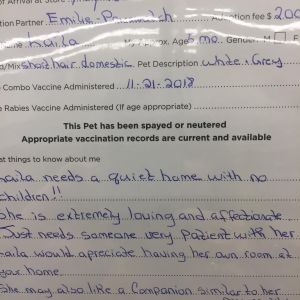 of Arrival at Store
tion Partner Emilie Adoption fee $ 200
Name Kaila My Approx. Age 5 mo. Gender: M F
d/Mix short hair domestic Pet Description White + Grey
Combo Vaccine Administered 11-21-2018
Rabies Vaccine Administered (If age appropriate)
This Pet has been spayed or neutered
Appropriate vaccination records are current and available
at things to know about me
Kaila needs a quiet home with no
children!!
She is extremely loving and affectionate
Just needs someone very patient with her
Kaila would apreciate having her own room at
your home.
She may also like a Companion similar to her